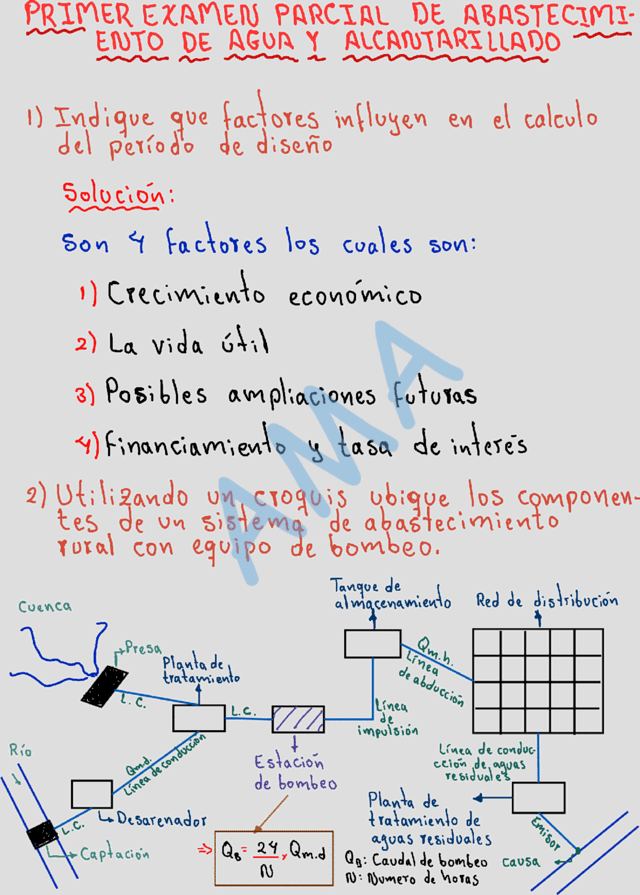 PRIMER EXAMEN PARCIAL DE ABASTECIMI-
ENTO DE AGUA Y ALCANTARILLADO
1) Indique que factores influyen en el calculo
del período de diseño
Solución:
Son 4 factores los cuales son:
1) Crecimiento económico
2) La vida útil
3) Posibles ampliaciones futuras
4) Financiamiento y tasa de interés
AMA
2) Utilizando un croquis ubique los componen-
tes de un sistema de abastecimiento
rural con equipo de bombeo.
Cuenca
Presa
L.C.
Planta de
tratamiento
L.C.
Tanque de
almacenamiento
Red de distribución
Qm.h.
Línea
de abducción
Línea
de
impulsión
Río
Qmd.
Línea de conducción
Estación
de bombeo
Línea de conduc-
cción de aguas
residuales
Desarenador
L.C.
Captación
⇒ QB = 24/N × Qm.d
Planta de
tratamiento de
aguas residuales
Emisor
causa
QB: Caudal de bombeo
N: Numero de horas